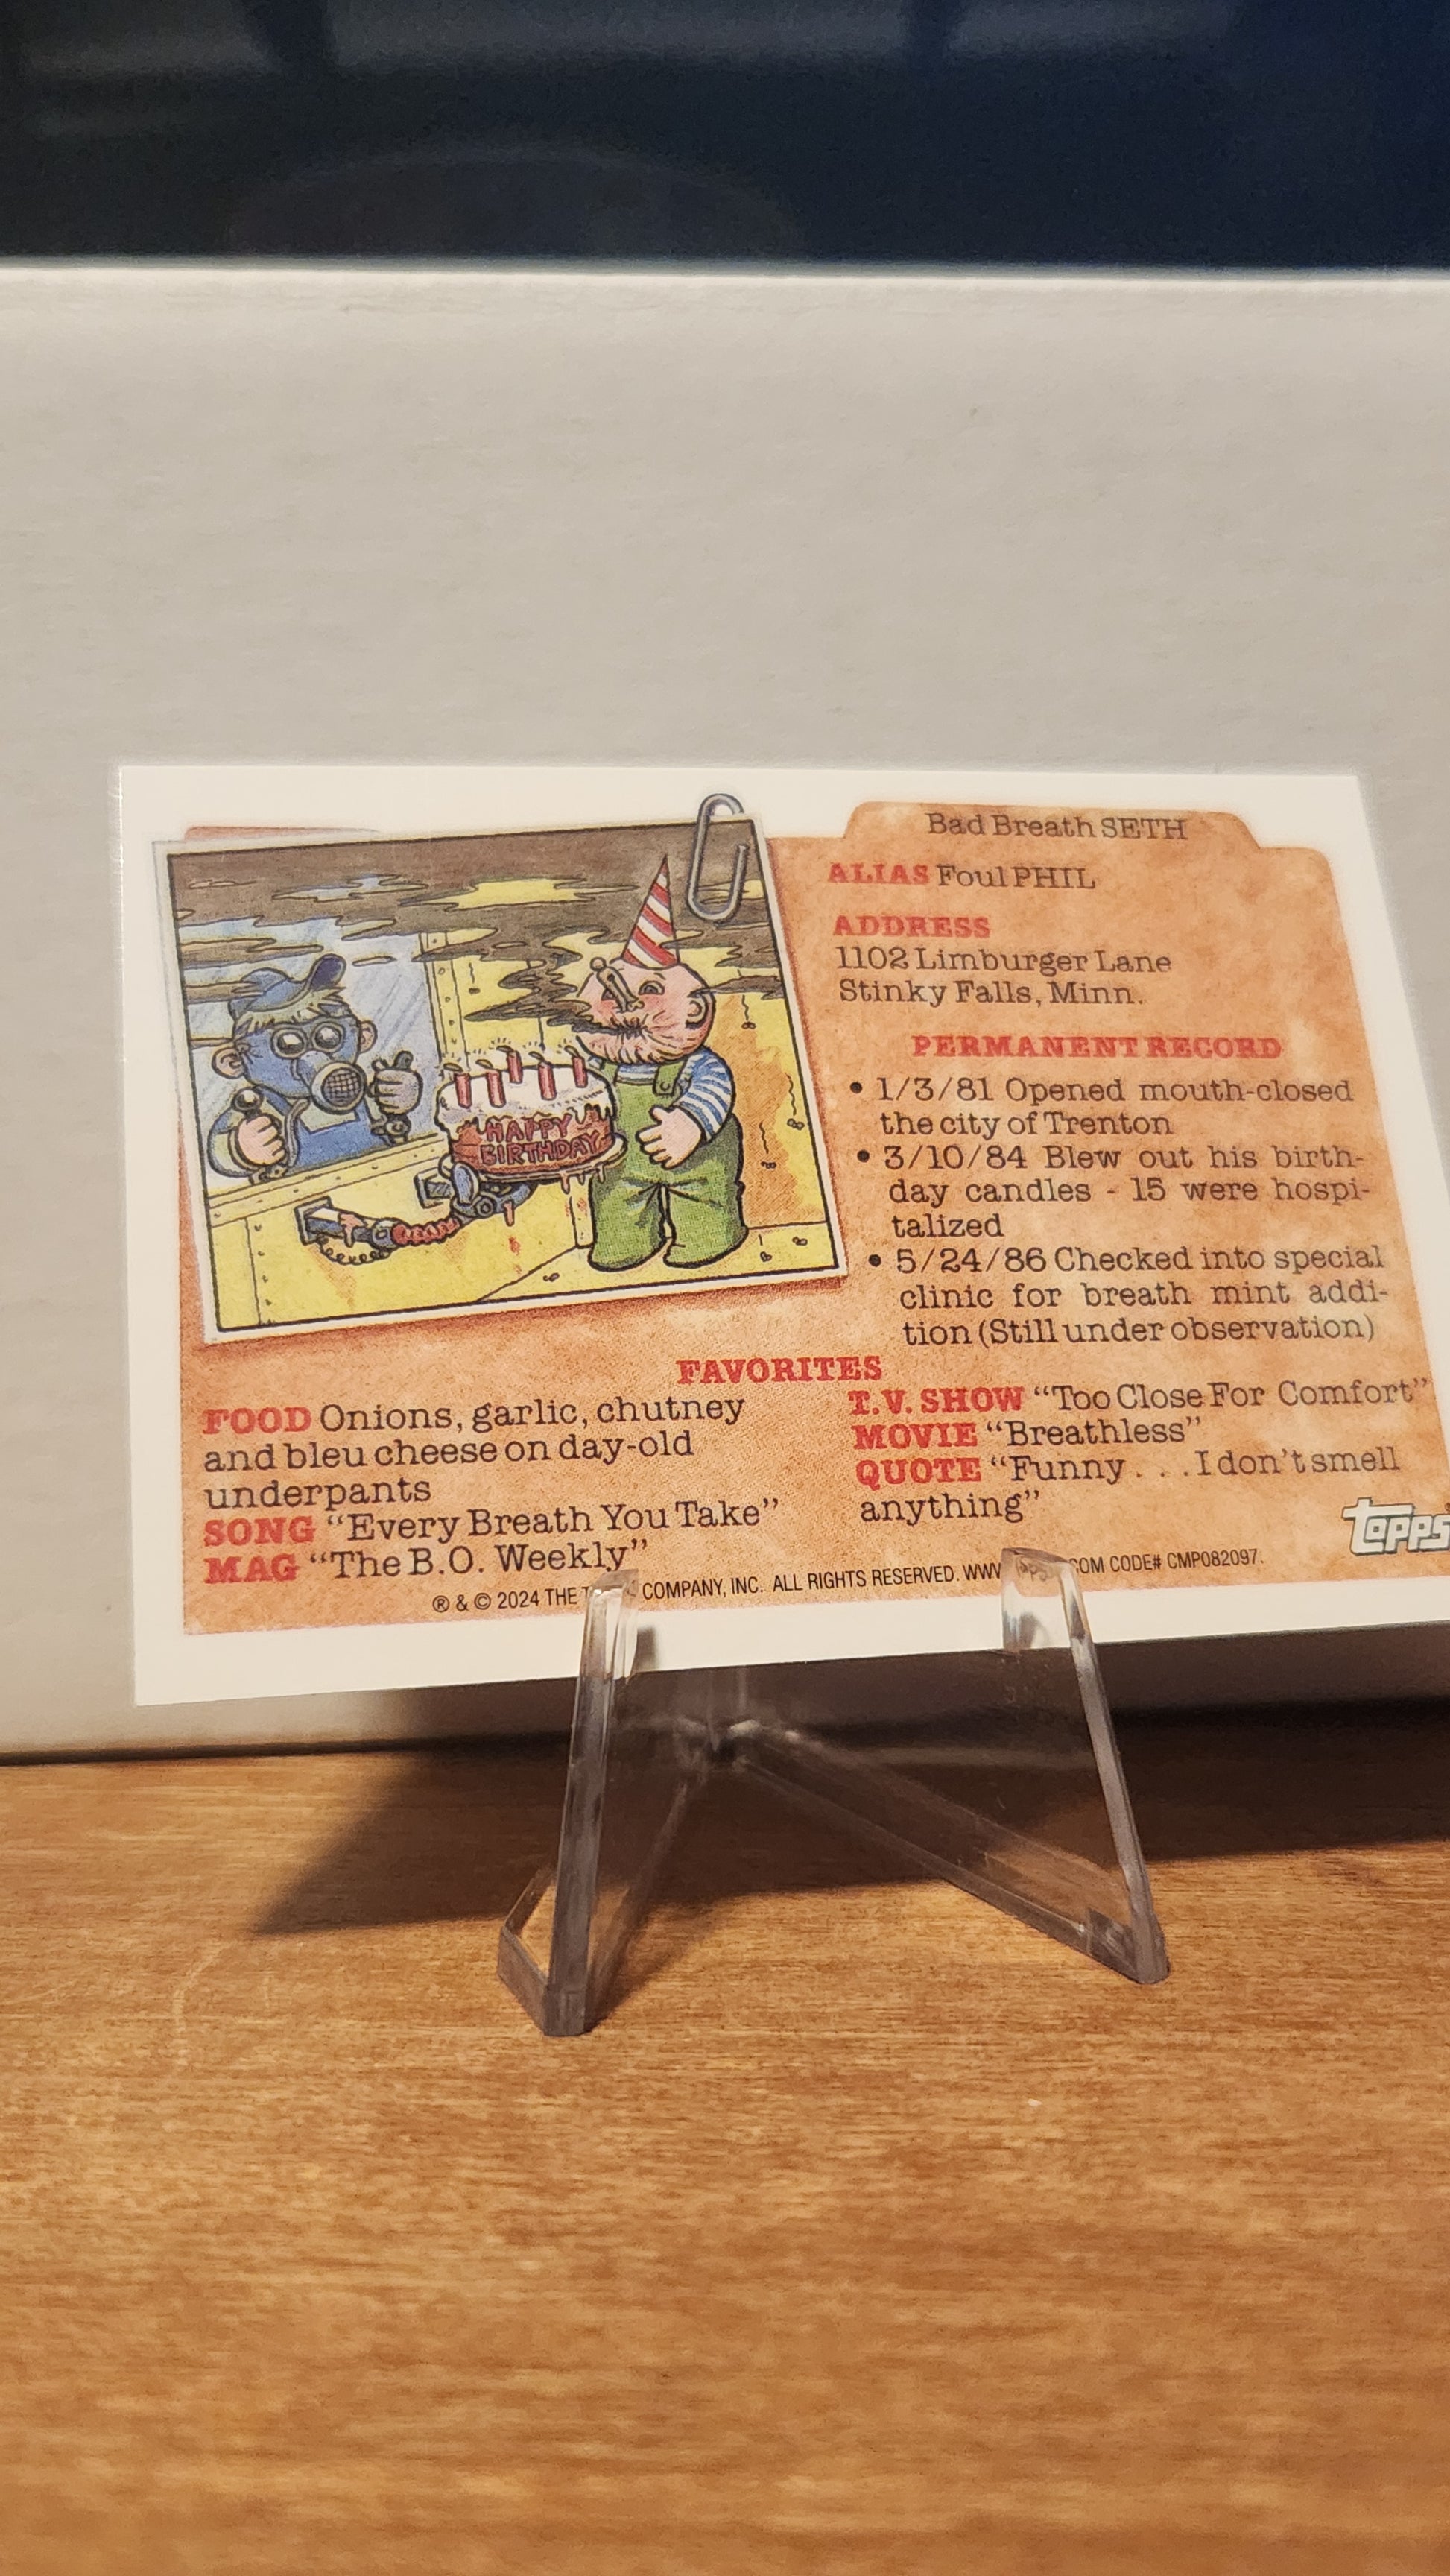 Bad Breath SETH
ALIAS Foul PHIL
ADDRESS
1102 Limburger Lane
Stinky Falls, Minn.
PERMANENT RECORD
• 1/3/81 Opened mouth-closed
the city of Trenton
• 3/10/84 Blew out his birth-
day candles - 15 were hospi-
talized
• 5/24/86 Checked into special
clinic for breath mint addi-
tion (Still under observation)
HAPPY
BIRTHDAY
FAVORITES
FOOD Onions, garlic, chutney
and bleu cheese on day-old
underpants
SONG "Every Breath You Take"
MAG "The B.O. Weekly"
T.V. SHOW "Too Close For Comfort"
MOVIE "Breathless"
QUOTE "Funny . . . I don't smell
anything"
Topps
® & © 2024 THE COMPANY, INC. ALL RIGHTS RESERVED. WWW COM CODE# CMP082097.